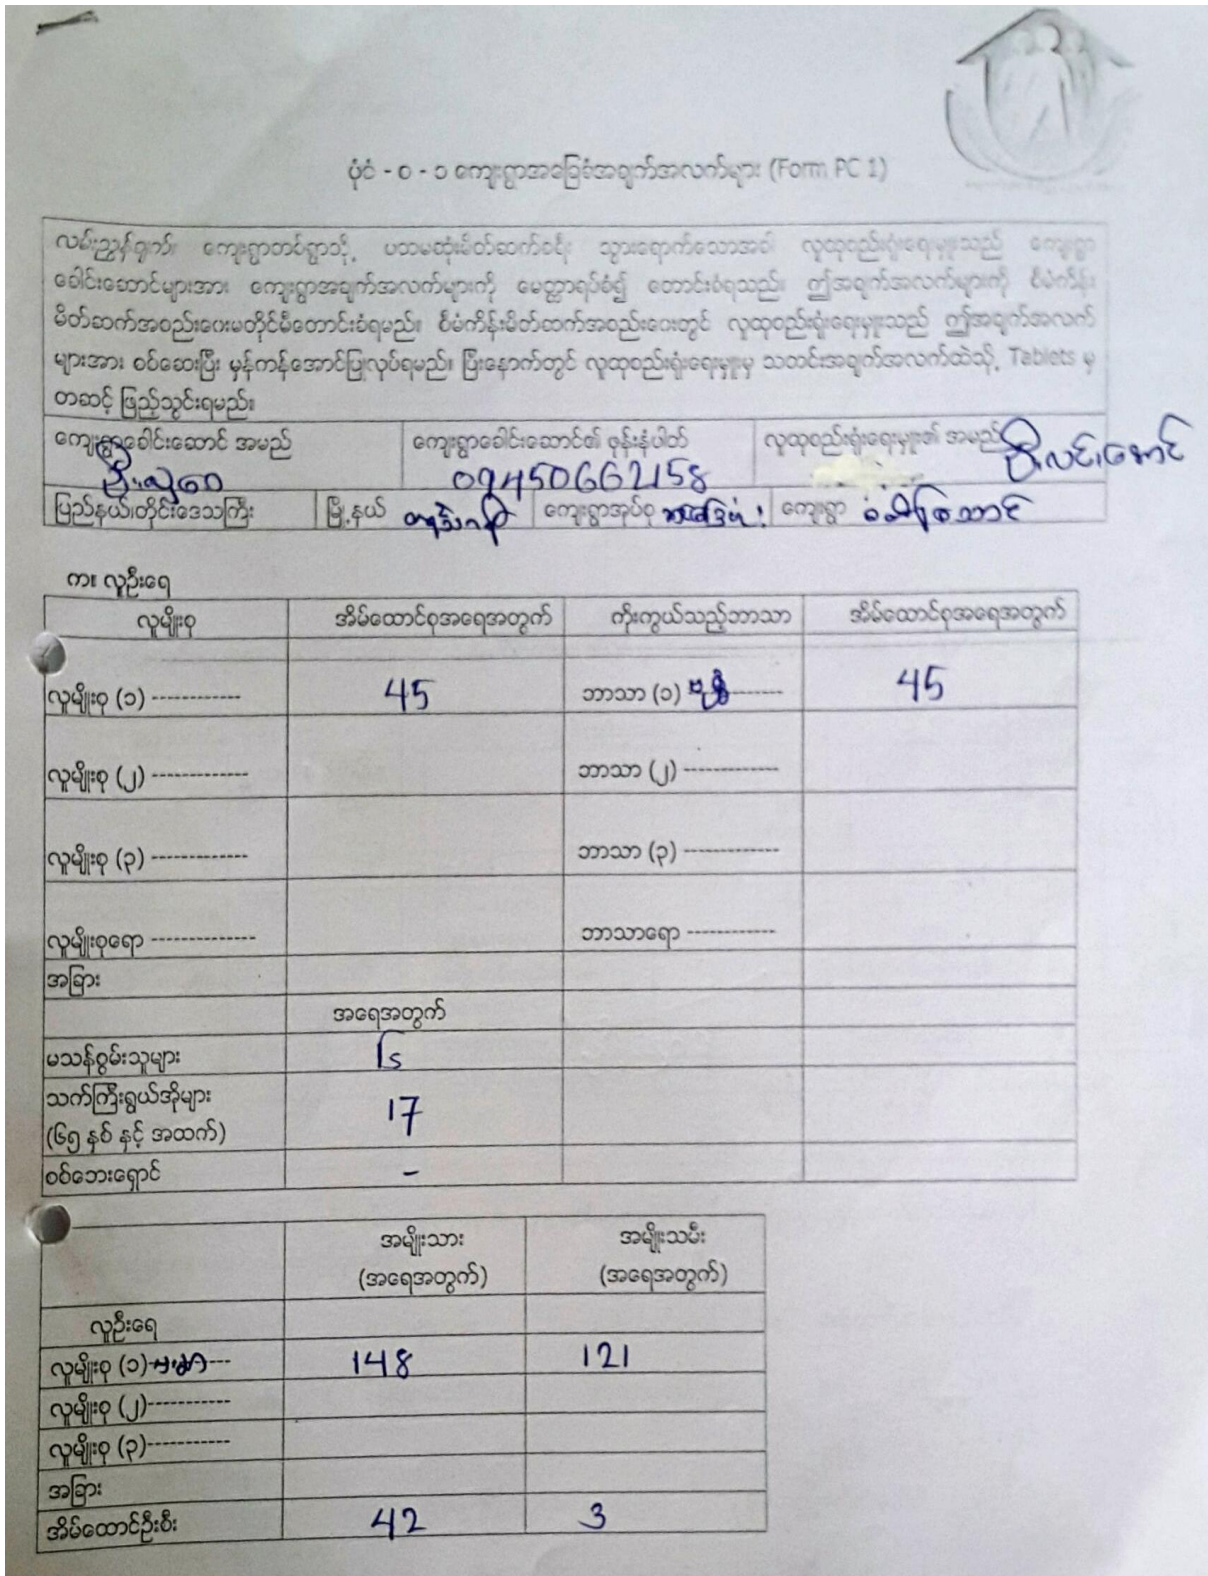 ပုံစံ - ၀ - ၁ ကျေးရွာအခြေခံအချက်အလက်များ (Form PC 1)
လမ်းညွှန်ချက်၊ ကျေးရွာတစ်ရွာသို့ ပထမဆုံးမိတ်ဆက်ခရီး သွားရောက်သောအခါ လူထုစည်းရုံးရေးမှူးသည် ကျေးရွာ
ခေါင်းဆောင်များအား ကျေးရွာအချက်အလက်များကို မေတ္တာရပ်ခံ၍ တောင်းခံရသည်။ ဤအချက်အလက်များကို စီမံကိန်း
မိတ်ဆက်အစည်းဝေးမတိုင်မီတောင်းခံရမည်။ စီမံကိန်းမိတ်ဆက်အစည်းဝေးတွင် လူထုစည်းရုံးရေးမှူးသည် ဤအချက်အလက်
များအား စစ်ဆေးပြီး မှန်ကန်အောင်ပြုလုပ်ရမည်။ ပြီးနောက်တွင် လူထုစည်းရုံးရေးမှူးမှ သတင်းအချက်အလက်ထဲသို့ Tablets မှ
တဆင့် ဖြည့်သွင်းရမည်။
ကျေးရွာခေါင်းဆောင် အမည် ကျေးရွာခေါင်းဆောင်၏ ဖုန်းနံပါတ် လူထုစည်းရုံးရေးမှူး၏ အမည် ဦးလင်းအောင်
09450662158
ပြည်နယ်၊တိုင်းဒေသကြီး မြို့နယ် ကျေးရွာအုပ်စု ကျေးရွာ
က။ လူဦးရေ
လူမျိုးစု အိမ်ထောင်စုအရေအတွက် ကိုးကွယ်သည့်ဘာသာ အိမ်ထောင်စုအရေအတွက်
လူမျိုးစု (၁) ------------- 45 ဘာသာ (၁) ဗုဒ္ဓ ------- 45
လူမျိုးစု (၂) ------------- ဘာသာ (၂) -------------
လူမျိုးစု (၃) ------------- ဘာသာ (၃) -------------
လူမျိုးစုရော -------------- ဘာသာရော ------------
အခြား
အရေအတွက်
မသန်စွမ်းသူများ
သက်ကြီးရွယ်အိုများ
(၆၅ နှစ် နှင့် အထက်) 17
စစ်ဘေးရှောင် -
အမျိုးသား အမျိုးသမီး
(အရေအတွက်) (အရေအတွက်)
လူဦးရေ
လူမျိုးစု (၁) --- 148 121
လူမျိုးစု (၂)-----------
လူမျိုးစု (၃)-----------
အခြား
အိမ်ထောင်ဦးစီး 42 3